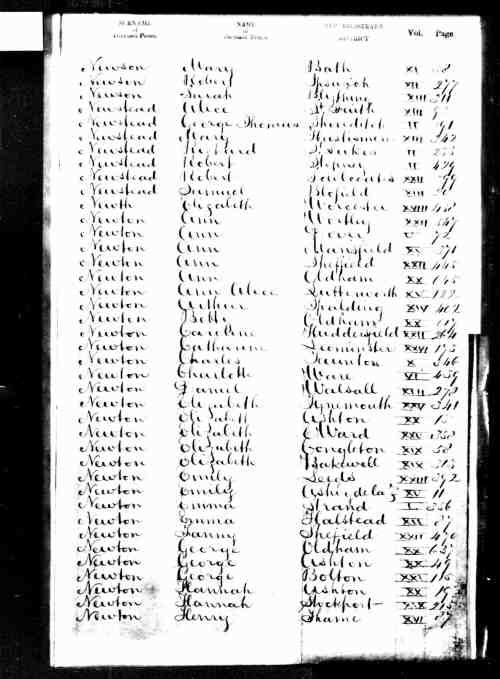 SURNAME NAME SUB REGISTRARS Vol. Page
of Deceased Person. of Deceased Person. DISTRICT
Newson Mary Bath XI
Newson Robert Ipswich XII 277
Newson Sarah Blything XIII
Newstead Alice St Faith XIII
Newstead George Thomas Shoreditch II 91
Newstead Mary Thetford XIII 343
Newstead St Lukes II
Newstead Robert Stepney II 479
Newstead Robert Sculcoates XXII
Newstead Samuel Blofield XIII
Newth Elizabeth Worcester XVIII
Newton Ann Wortley XXII
Newton Ann Dover V 72
Newton Ann Mansfield XV 371
Newton Ann Sheffield XXII 445
Newton Ann Oldham XX 645
Newton Ann Alice Lutterworth XV
Newton Arthur Spalding XIV 402
Newton Betty Oldham XX
Newton Caroline Huddersfield XXII
Newton Catharine Leominster XXVI 173
Newton Charles Taunton X 346
Newton Charlotte Ware VI 439
Newton Daniel Walsall XVII 278
Newton Elizabeth Tynemouth XXV 341
Newton Elizabeth Ashton XX 15
Newton Elizabeth E Ward XXV
Newton Elizabeth Congleton XIX 38
Newton Elizabeth Bakewell XIX 313
Newton Emily Leeds XXIII 392
Newton Emily Ashby de la Z XV 11
Newton Emma Strand I 336
Newton Emma Halstead XII
Newton Fanny Sheffield XXII 470
Newton George Oldham XX 623
Newton George Ashton XX 49
Newton George Bolton XXI 116
Newton Hannah Ashton XX 19
Newton Hannah Stockport XIX 215
Newton Henry Thame XVI